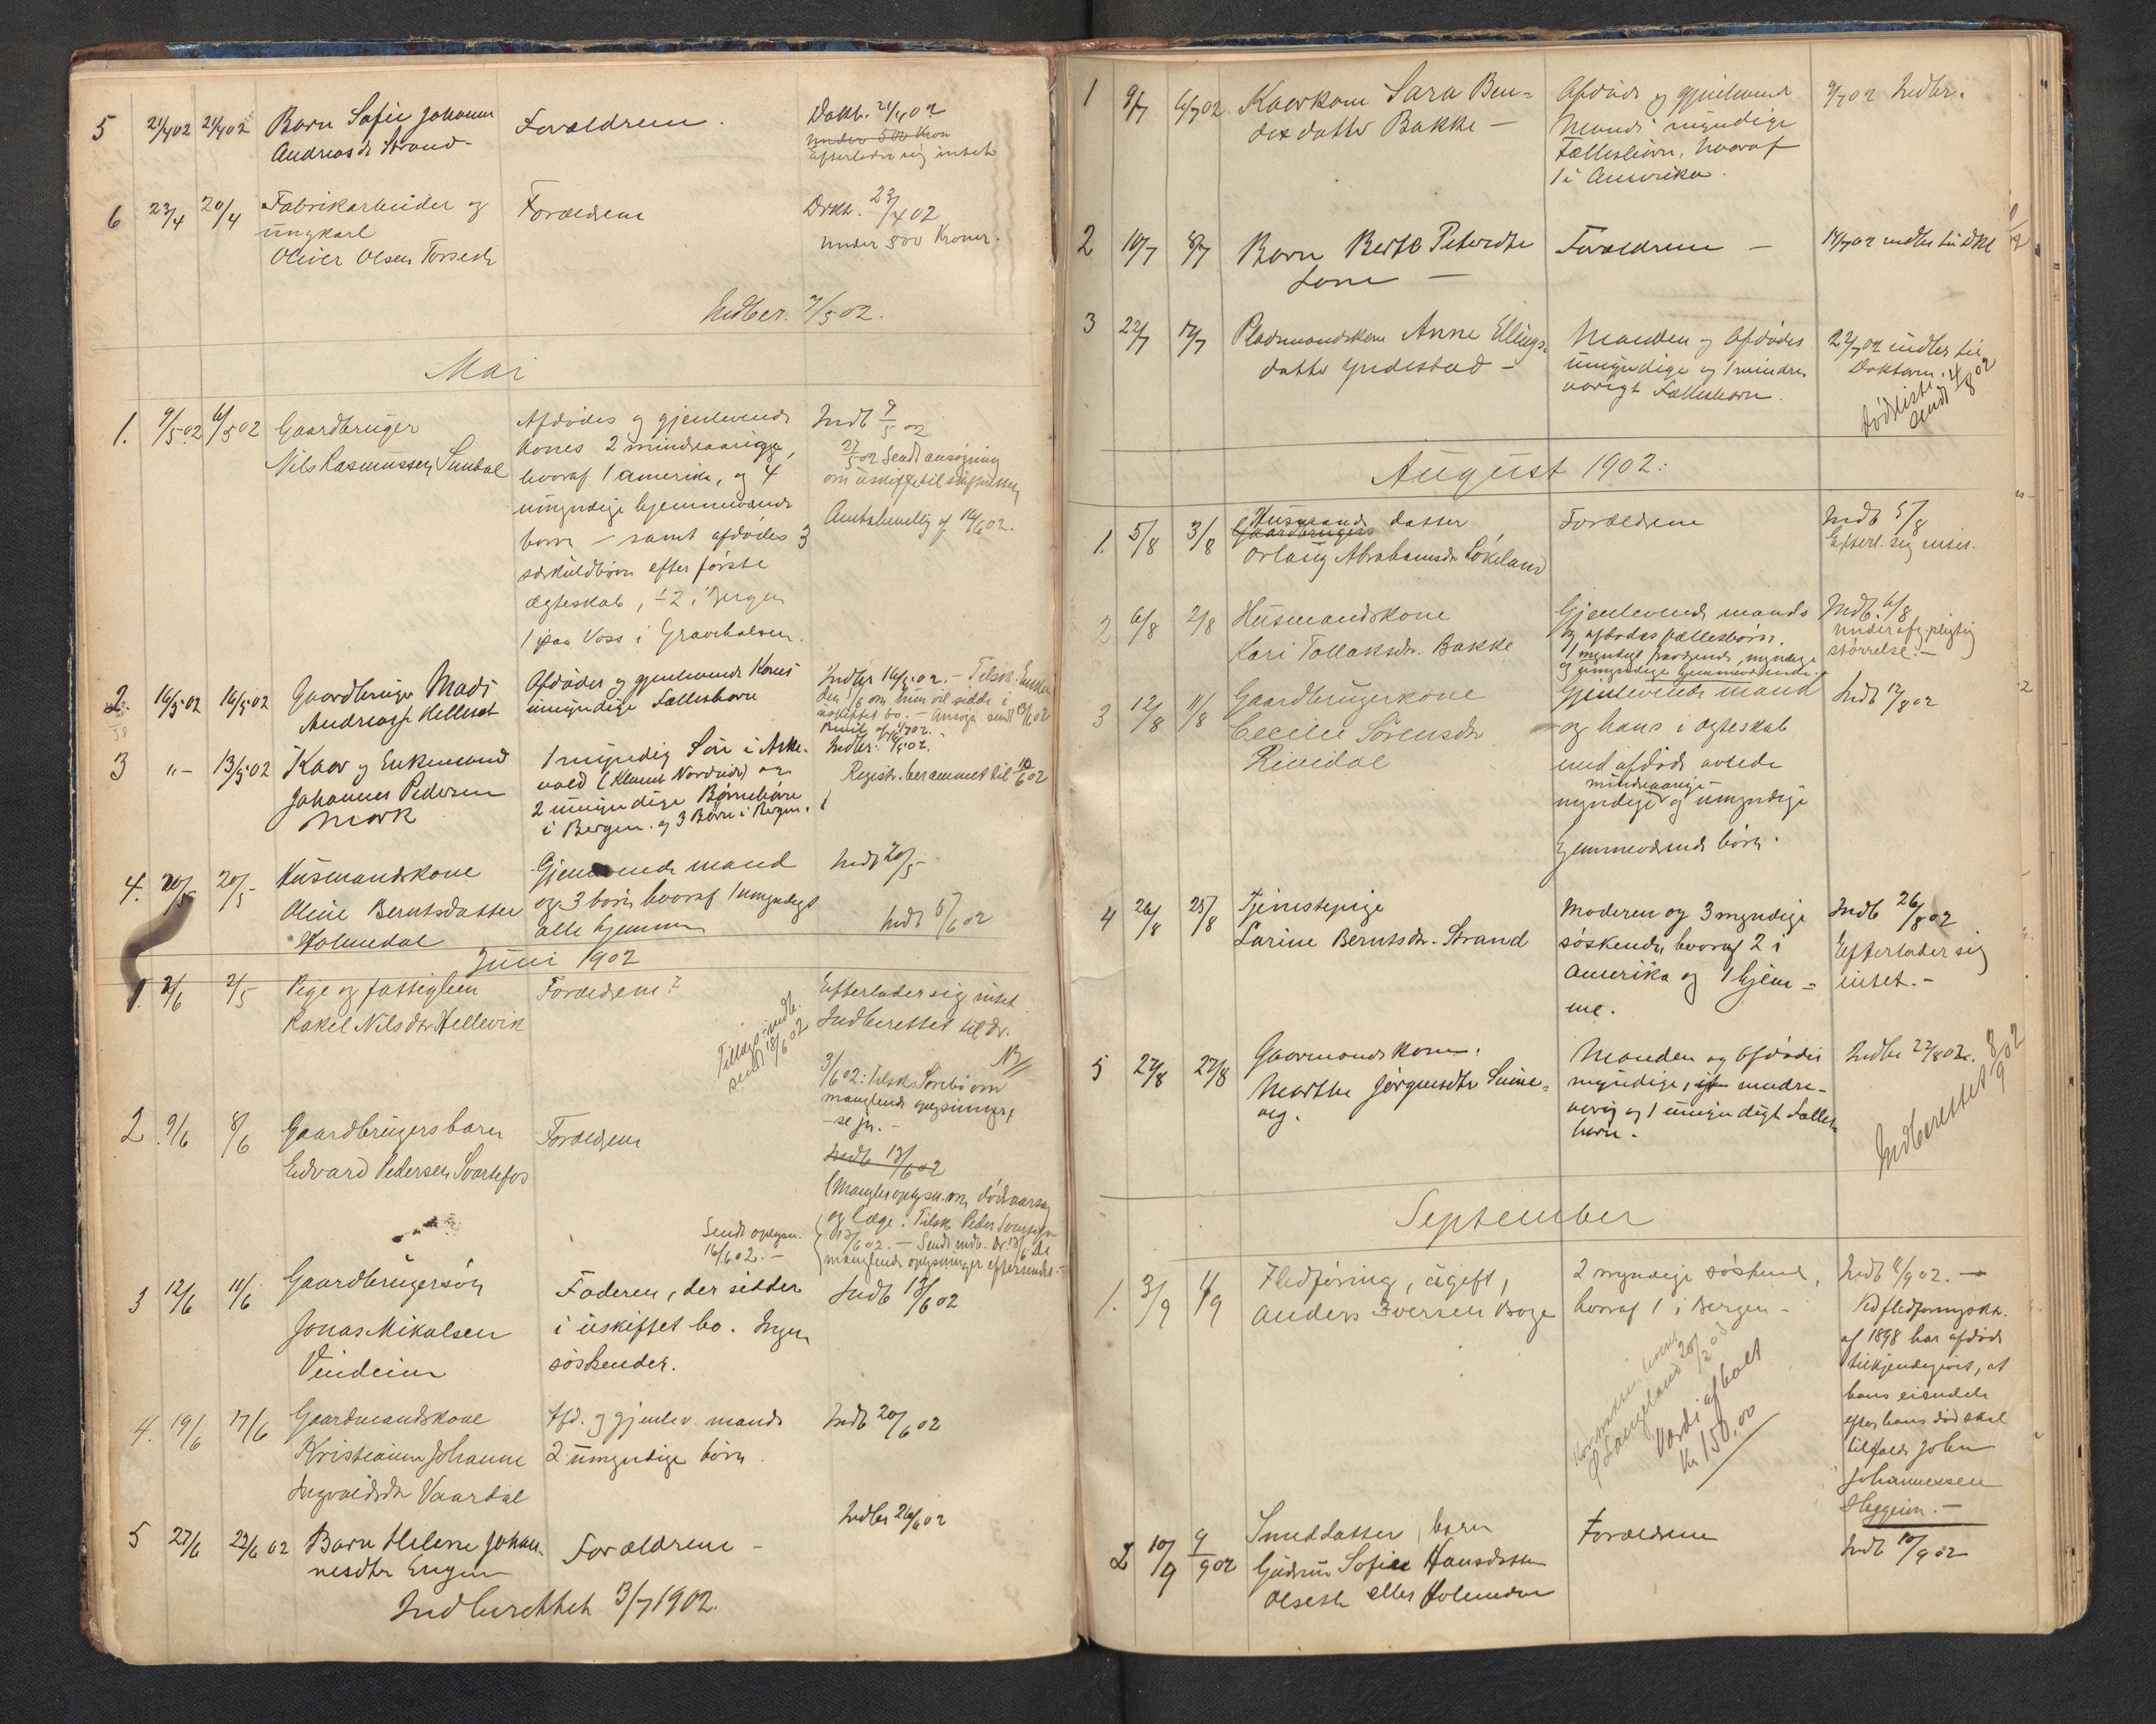 5 21/4 02 21/4 02 Barn Sofie Johanne Forældrene. Dokt. 21/4 02
Andreasdr Strand - under 500 Kron
Efterlader sig intet
6 23/4 20/4 Fabrikarbeider og Forældrene Drkt. 23/4 02
ungkarl under 500 Kroner.
Oliver Olsen
Indber. 2/5 02.
Mai
1. 9/5 02 6/5 02 Gaardbruger Afdødes og gjenlevende Indb 9/5 02
Nils Rasmussen Sundal Kones 2 mindreaarige, 27/5 02 Sendt ansøgning
hvoraf 1 Amerika, og 4 om uskifte til
umyndige hjemmeværende Amtsbevillg af 14/6 02.
børn - samt afdødes 3
særkuldbørn efter første
ægteskab, 2 i Bergen
1 paa Voss i Gravehalsen.
2. 16/5 02 16/5 02 Gaardbruger Mads Afdødes og gjenlevende Kones Indbr 16/5 02. - Tilsk. Enken
Andreass. Hellesæt umyndige Fællesbørn den 5/6 om hun vil sidde i
uskiftet bo. - Ansøgn. sendt 13/6 02
3 "- 13/5 02 Kaar og Enkemand 1 myndig Søn i Aske- Indbr. 16/5 02.
Johannes Pedersen vold og Registr. berammet til 10/6 02
Mork 2 umyndige Børnebørn
i Bergen. og 3 Børn i Bergen.
4. 20/5 20/5 Husmandskone Gjenlevende mand Indb 20/5 -
Oline Berntsdatter og 3 børn hvoraf 1 umyndigt Indb 5/6 02
Holmedal alle hjemme
Juni 1902
1. 2/6 2/5 Pige og fattiglem Forældrene? Efterlader sig intet
Rakel Nilsdtr Hellevik Indberettet til dr.
Tillægsindb. sendt 18/6 02 NB
3/6 02: Tilsk. om
manglende oplysninger,
- se jr. -
2. 9/6 8/6 Gaardbrugersbarn Forældrene
Edvard Pedersen Svartefos Indb 13/6 02
(Mangler oplysn. om dødsaarsag
Sendt oplysn. og læge. Tilsk. Peder
16/6 02. - 13/6 02. - Sendt indb. dr. 13/6 De
manglende oplysninger eftersendes -
3 12/6 11/6 Gaardbrugersøn Faderen, der sidder Indb 13/6 02
Jonas Mikalsen i uskiftet bo. Ingen
Vindeim søskender.
4. 19/6 17/6 Gaardmandskone Afd. og gjenlev. mands Indb 20/6 02
Kristianne Johanne 2 umyndige børn.
Ingvaldsdr Vaardal
Indber 26/6 02
5 27/6 22/6 02 Barn Helene Johan- Forældrene -
nesdtr Engen
Indberettet 3/7 1902.
1 9/7 6/7 02 Kaarkone Sara Ben- Afdøde og gjenlevende 9/7 02 Indbr.
dixdatter Bakke - Mands myndige
Fællesbørn, hvoraf
1 i Amerika.
2 14/7 8/7 Barn Berte Petersdtr Forældrene - 14/7 02 indbr til Dkt
Lone -
3 22/7 17/7 Pladsmandskone Anne Ellings- Manden og Afdødes 22/7 02 indber til
datter Yndestad - umyndige og 1 mindre- Doktoren.
aarigt Fællesbarn. Dødsliste sendt 4/8 02
August 1902:
1. 5/8 3/8 Husmands datter Forældrene Indb 5/8
Gaardbrugers Efterl. sig intet.
Orlaug Abrahamsdr Løkeland
2 6/8 2/8 Husmandskone Gjenlevende mands Indb. 6/8
Kari Tollaksdr. Bakke og afdødes fællesbørn. under afg. pligtig
1 myndigt fraværende, myndige størrelse. -
og umyndige hjemmeværende.
3 12/8 11/8 Gaardbrugerkone Gjenlevende mand Indb 12/8 02
Cecilie Sørensdr og hans i ægteskab
Rivedal med afdøde avlede
mindreaarige
myndige og umyndige
hjemmeværende børn.
4 26/8 25/8 Tjenestepige Moderen og 3 myndige Indb 26/8 02
Larine Berntsdr. Strand søskende, hvoraf 2 i Efterlader sig
Amerika og 1 hjem- intet. -
me.
5 27/8 27/8 Gaarmandskone. Manden og Afdødes Indbr 27/8 02.
Marthe Jørgensdtr myndige, mindre-
aarig og 1 umyndigt Fælles-
børn. Indberettet 8/9 02
September
1. 3/9 1/9 Fledføring, ugift, 2 myndige søskende, Indb 4/9 02. -
Anders Iversen hvoraf 1 i Bergen - Ved fledføringskt.
af 1898 har afdøde
tilkjendegivet, at
hans eiendele
Værdi af boet efter hans død skal
kr 150.00 tilfalde John
Johannessen
Heggeim. -
2 10/9 9/9 02 Smeddatter, barn Forældrene Indb 10/9 02
Gudrun Sofie Hansdatter
Olset eller Holmedal